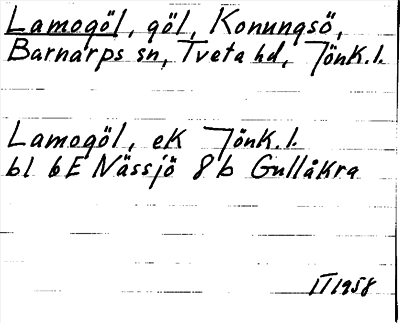 Lamogöl, göl, Konungsö,
Barnarps sn, Tveta hd, JönK.l.
Lamogöl, eK JönK.l.
bl 6E Nässjö 8b Gullåkra
II 1958